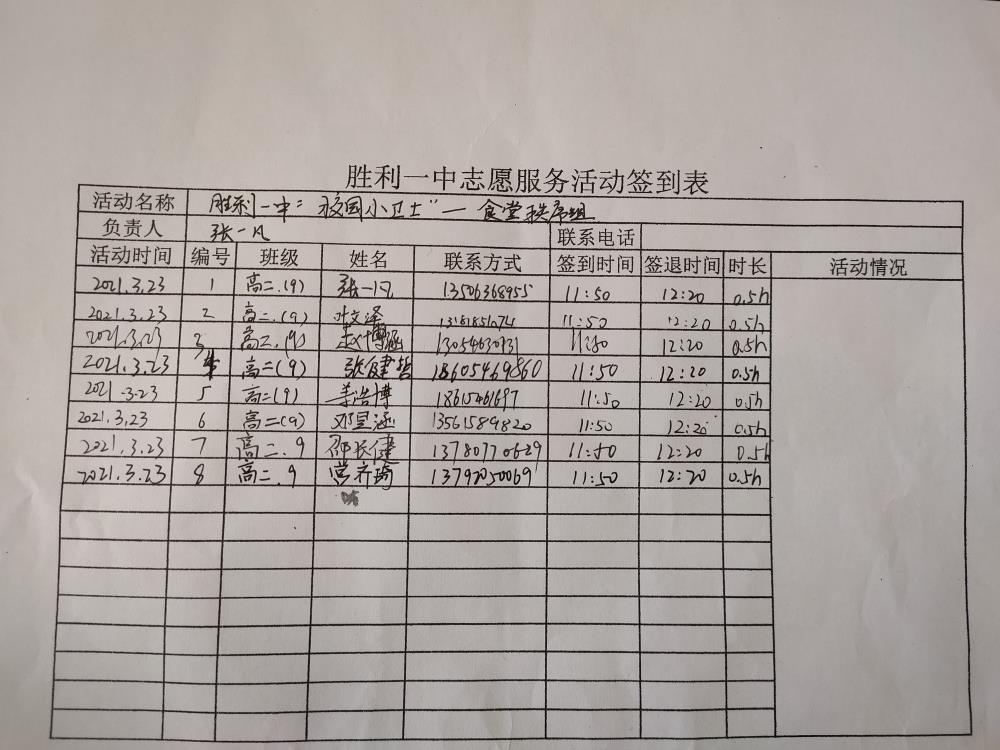 胜利一中志愿服务活动签到表
活动名称 胜利一中"校园小卫士"—食堂秩序组
负责人 张一凡 联系电话
活动时间 编号 班级 姓名 联系方式 签到时间 签退时间 时长 活动情况
2021.3.23 1 高二.(9) 张一凡 13506368955 11:50 12:20 0.5h
2021.3.23 2 高二.(9) 叶文泽 11:50 12:20 0.5h
2021.3.23 3 高二.(9) 赵博涵 13054630931 11:50 12:20 0.5h
2021.3.23 4 高二(9) 张健哲 18605469860 11:50 12:20 0.5h
2021.3.23 5 高二(9) 李浩博 18615461697 11:50 12:20 0.5h
2021.3.23 6 高二(9) 邓昱涵 13561589820 11:50 12:20 0.5h
2021.3.23 7 高二.9 邵长健 13780770629 11:50 12:20 0.5h
2021.3.23 8 高二.9 常齐瑜 13792050069 11:50 12:20 0.5h